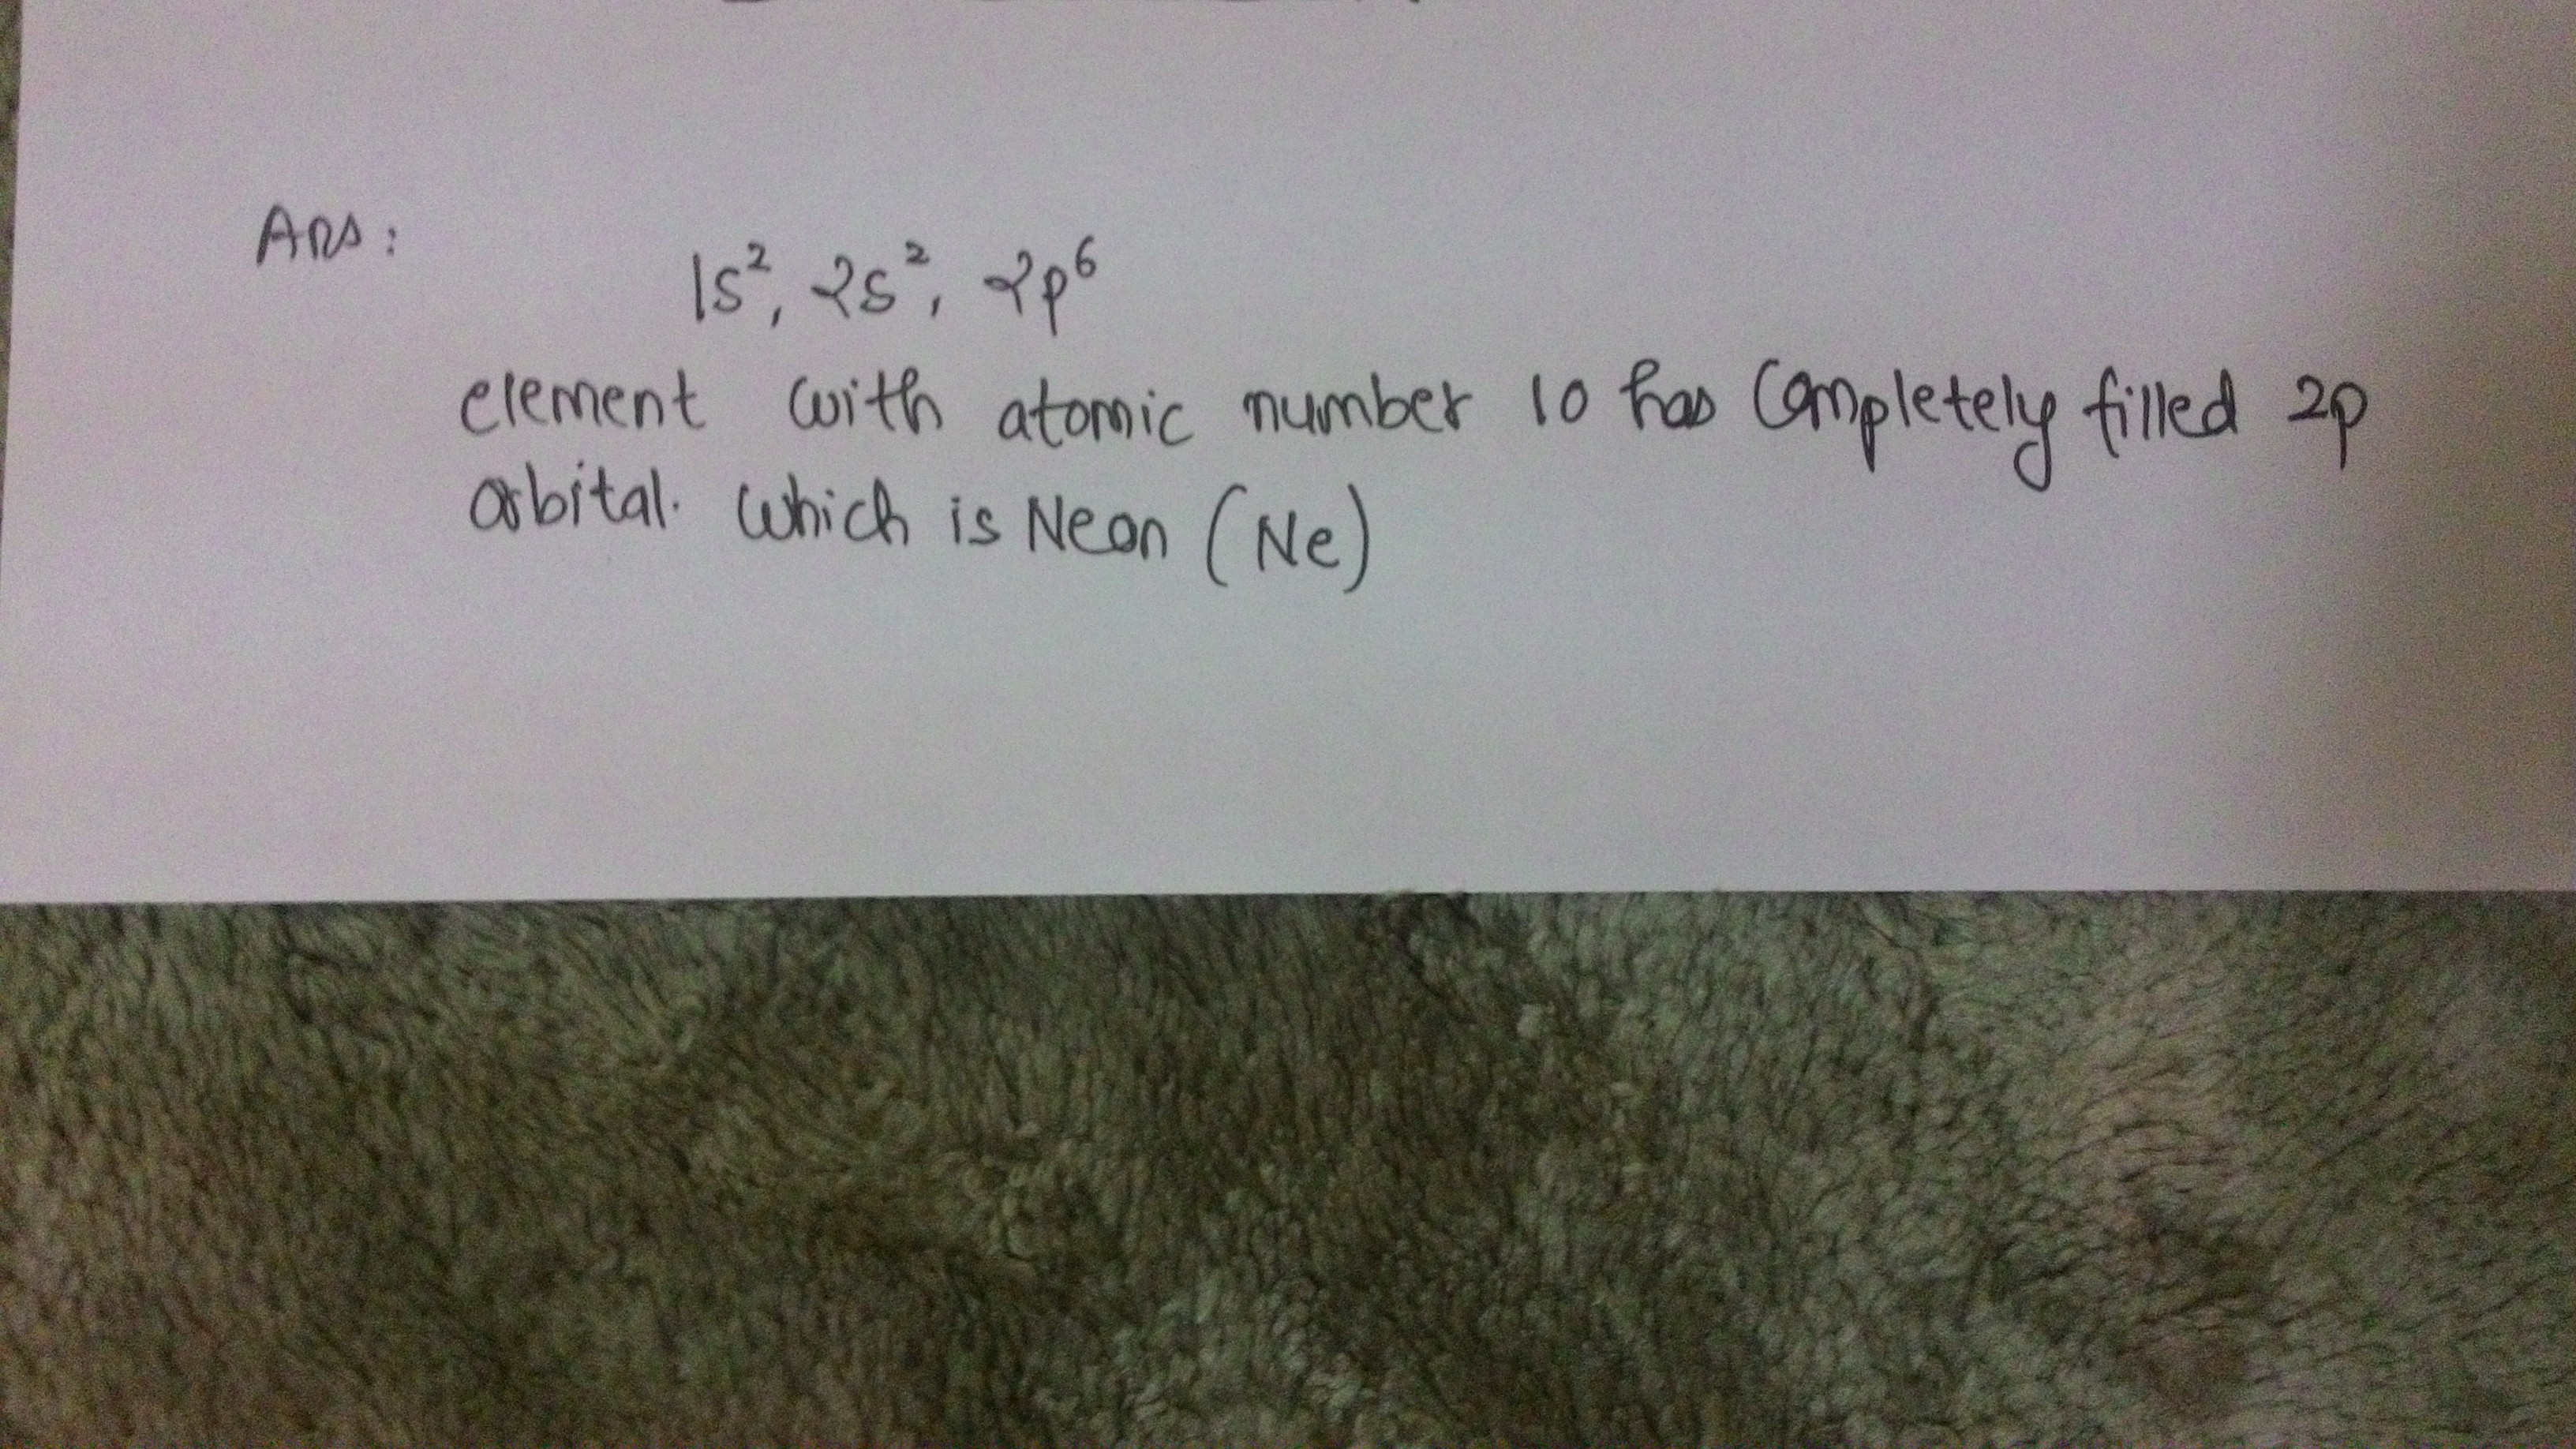 Ans:
1s², 2s², 2p⁶
element with atomic number 10 has Completely filled 2p
orbital. Which is Neon (Ne)